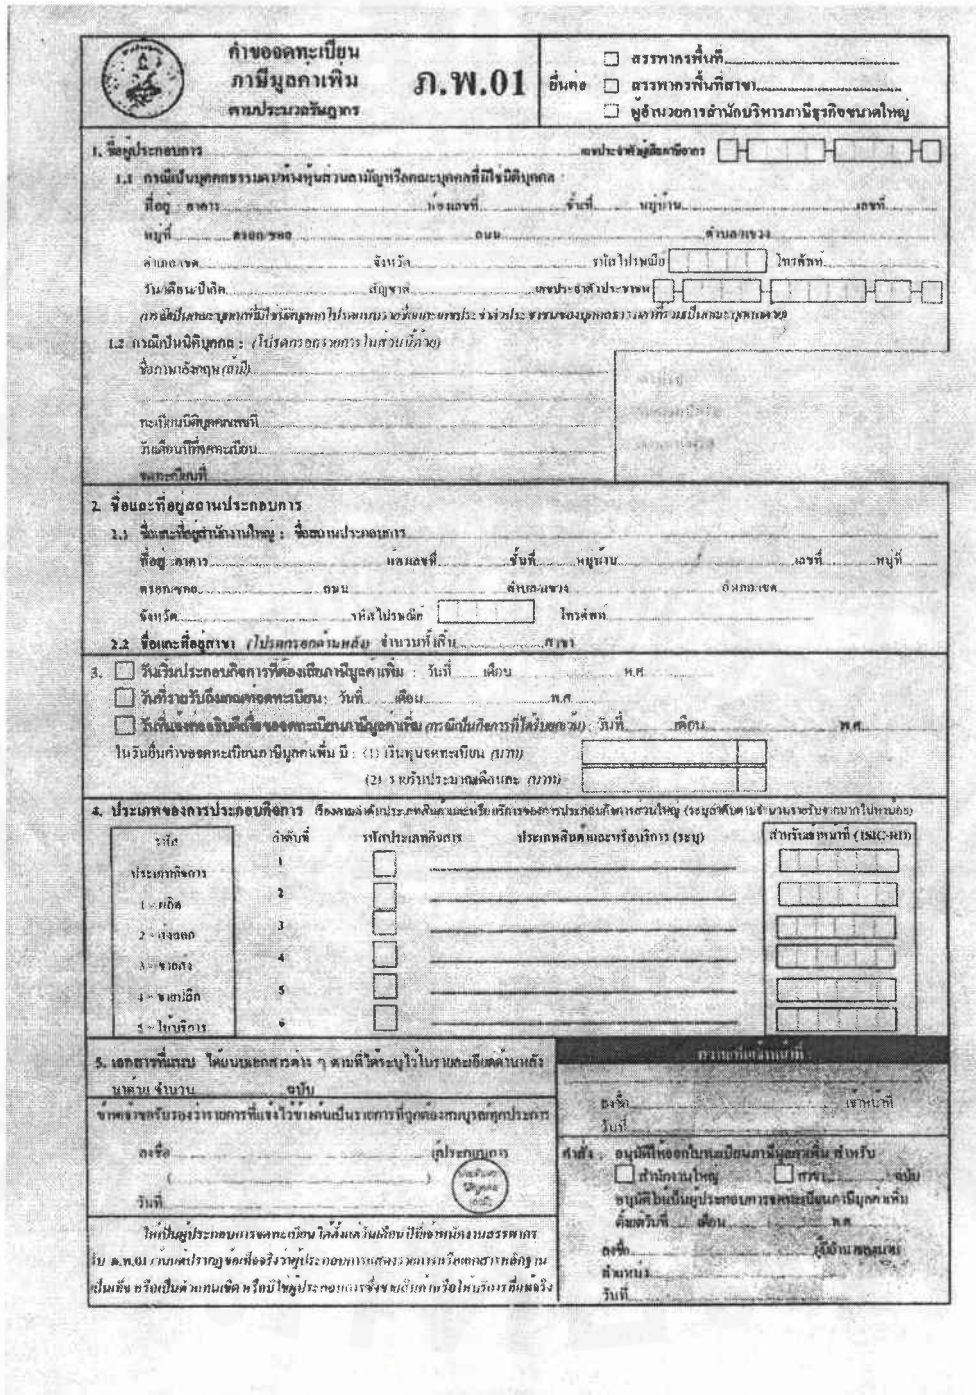 คำขอจดทะเบียน
ภาษีมูลค่าเพิ่ม
ตามประมวลรัษฎากร
ภ.พ.01
ยื่นต่อ
สรรพากรพื้นที่
สรรพากรพื้นที่สาขา
ผู้อำนวยการสำนักบริหารภาษีธุรกิจขนาดใหญ่
1. ชื่อผู้ประกอบการ เลขประจำตัวผู้เสียภาษีอากร
1.1 กรณีเป็นบุคคลธรรมดา/ห้างหุ้นส่วนสามัญหรือคณะบุคคลที่มิใช่นิติบุคคล :
ที่อยู่ : อาคาร ห้องเลขที่ ชั้นที่ หมู่บ้าน เลขที่
หมู่ที่ ตรอก/ซอย ถนน ตำบล/แขวง
อำเภอ/เขต จังหวัด รหัสไปรษณีย์ โทรศัพท์
วัน/เดือน/ปีเกิด สัญชาติ เลขประจำตัวประชาชน
1.2 กรณีเป็นนิติบุคคล : (โปรดกรอกรายการในส่วนนี้ด้วย)
ชื่อภาษาอังกฤษ (ถ้ามี)
ทะเบียนนิติบุคคลเลขที่
วันเดือนปีที่จดทะเบียน
จดทะเบียนที่
2. ชื่อและที่อยู่สถานประกอบการ
2.1 ชื่อและที่อยู่สำนักงานใหญ่ : ชื่อสถานประกอบการ
ที่อยู่ : อาคาร ห้องเลขที่ ชั้นที่ หมู่บ้าน เลขที่ หมู่ที่
ตรอก/ซอย ถนน ตำบล/แขวง อำเภอ/เขต
จังหวัด รหัสไปรษณีย์ โทรศัพท์
2.2 ชื่อและที่อยู่สาขา (โปรดกรอกด้านหลัง) จำนวนทั้งสิ้น สาขา
3. วันเริ่มประกอบกิจการที่ต้องเสียภาษีมูลค่าเพิ่ม : วันที่ เดือน พ.ศ.
วันที่รายรับถึงเกณฑ์จดทะเบียน : วันที่ เดือน พ.ศ.
วันที่แจ้งขอใช้สิทธิเพื่อขอจดทะเบียนภาษีมูลค่าเพิ่ม (กรณีเป็นกิจการที่ได้รับยกเว้น) : วันที่ เดือน พ.ศ.
ในวันยื่นคำขอจดทะเบียนภาษีมูลค่าเพิ่ม มี : (1) เงินทุนจดทะเบียน (บาท)
(2) รายรับประมาณเดือนละ (บาท)
4. ประเภทของการประกอบกิจการ เรียงตามลำดับประเภทสินค้าและหรือบริการของการประกอบกิจการส่วนใหญ่ (ระบุลำดับตามจำนวนรายรับจากมากไปหาน้อย)
รหัส ลำดับที่ รหัสประเภทกิจการ ประเภทสินค้าและหรือบริการ (ระบุ) สำหรับเจ้าหน้าที่ (ISIC-RD)
ประเภทกิจการ 1
1 - ผลิต 2
2 - ส่งออก 3
3 - ขายส่ง 4
4 - ขายปลีก 5
5 - ให้บริการ 6
5. เอกสารที่แนบ ได้แนบเอกสารต่าง ๆ ตามที่ได้ระบุไว้ในรายละเอียดด้านหลัง
มาด้วย จำนวน ฉบับ
ข้าพเจ้าขอรับรองว่ารายการที่แจ้งไว้ข้างต้นเป็นรายการที่ถูกต้องสมบูรณ์ทุกประการ
ลงชื่อ ผู้ประกอบการ
( )
วันที่
ประทับตรา
นิติบุคคล
(ถ้ามี)
ให้เป็นผู้ประกอบการจดทะเบียน ได้ตั้งแต่วันเดือนปีที่เจ้าพนักงานสรรพากร
ความเห็นเจ้าหน้าที่
ลงชื่อ เจ้าหน้าที่
วันที่
คำสั่ง : อนุมัติให้ออกใบทะเบียนภาษีมูลค่าเพิ่ม สำหรับ
สำนักงานใหญ่ สาขา ฉบับ
อนุมัติให้เป็นผู้ประกอบการจดทะเบียนภาษีมูลค่าเพิ่ม
ตั้งแต่วันที่ เดือน พ.ศ.
ลงชื่อ ผู้มีอำนาจลงนาม
ตำแหน่ง
วันที่